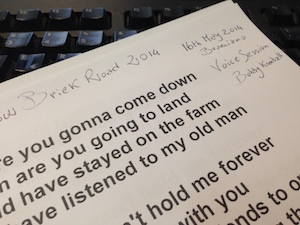 Brick Road 2014
16th May 2014
Voice Session
Baby
re you gonna come down
n are you going to land
ld have stayed on the farm
have listened to my old man
't hold me forever
with you
ends to o